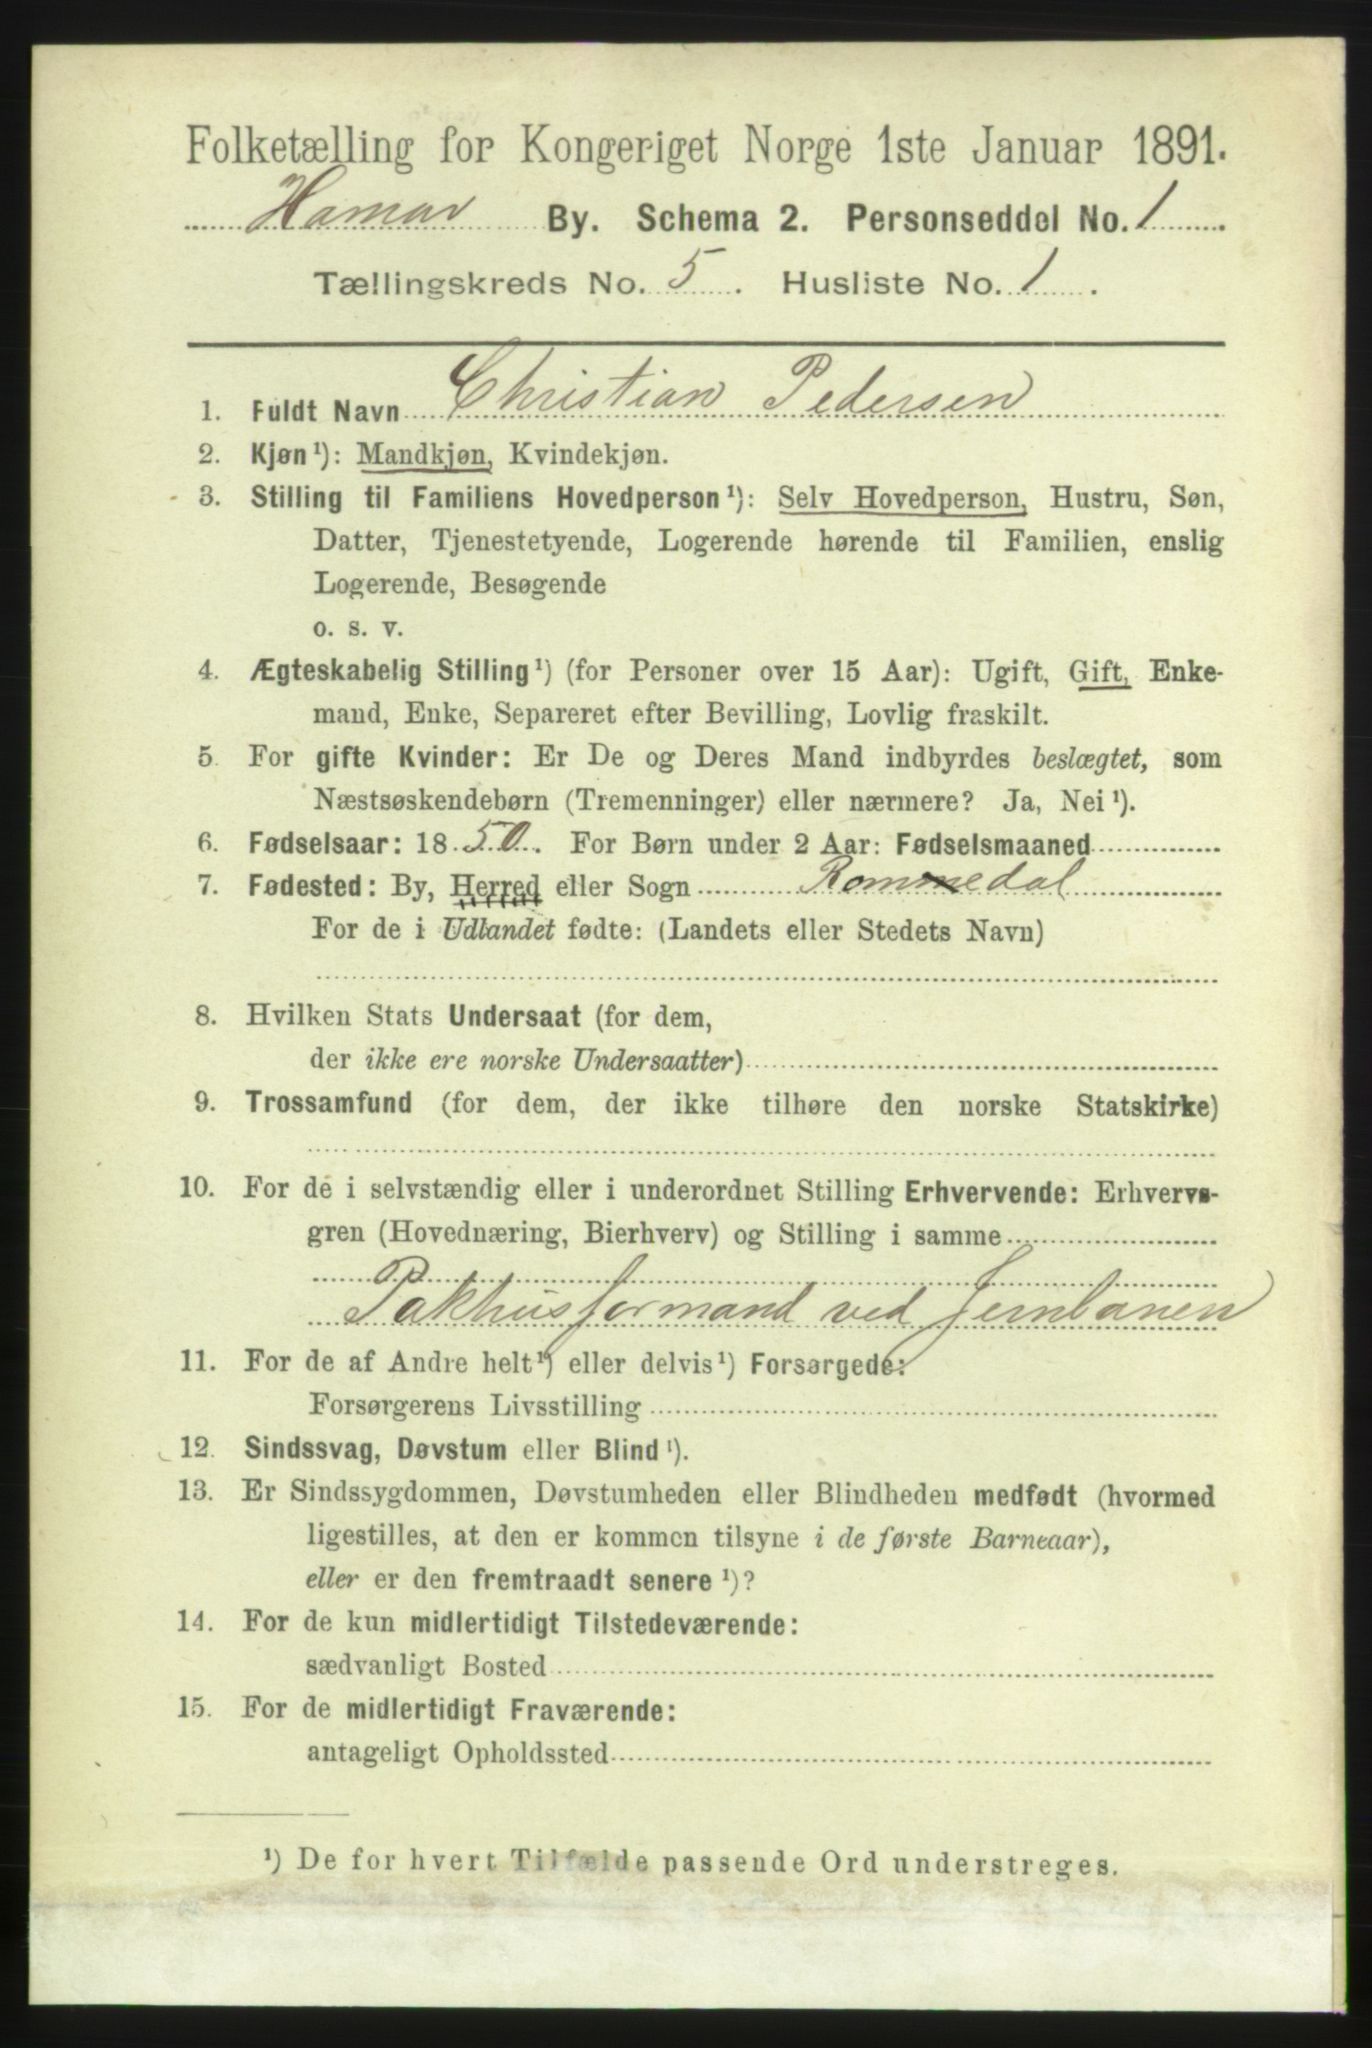 Folketælling for Kongeriget Norge 1ste Januar 1891.
Hamar By. Schema 2. Personseddel No. 1
Tællingskreds No. 5. Husliste No. 1.
1. Fuldt Navn Christian Pedersen
2. Kjøn¹): Mandkjøn, Kvindekjøn.
3. Stilling til Familiens Hovedperson¹): Selv Hovedperson, Hustru, Søn,
Datter, Tjenestetyende, Logerende hørende til Familien, enslig
Logerende, Besøgende
o. s. v.
4. Ægteskabelig Stilling¹) (for Personer over 15 Aar): Ugift, Gift, Enke-
mand, Enke, Separeret efter Bevilling, Lovlig fraskilt.
5. For gifte Kvinder: Er De og Deres Mand indbyrdes beslægtet, som
Næstsøskendebørn (Tremenninger) eller nærmere? Ja, Nei¹).
6. Fødselsaar: 1850. For Børn under 2 Aar: Fødselsmaaned
7. Fødested: By, Herred eller Sogn Rommedal
For de i Udlandet fødte: (Landets eller Stedets Navn)
8. Hvilken Stats Undersaat (for dem,
der ikke ere norske Undersaatter)
9. Trossamfund (for dem, der ikke tilhøre den norske Statskirke)
10. For de i selvstændig eller i underordnet Stilling Erhvervende: Erhvervs-
gren (Hovednæring, Bierhverv) og Stilling i samme
Pakhusformand ved Jernbanen
11. For de af Andre helt¹) eller delvis¹) Forsørgede:
Forsørgerens Livsstilling
12. Sindssvag, Døvstum eller Blind¹).
13. Er Sindssygdommen, Døvstumheden eller Blindheden medfødt (hvormed
ligestilles, at den er kommen tilsyne i de første Barneaar),
eller er den fremtraadt senere¹)?
14. For de kun midlertidigt Tilstedeværende:
sædvanligt Bosted
15. For de midlertidigt Fraværende:
antageligt Opholdssted
¹) De for hvert Tilfælde passende Ord understreges.